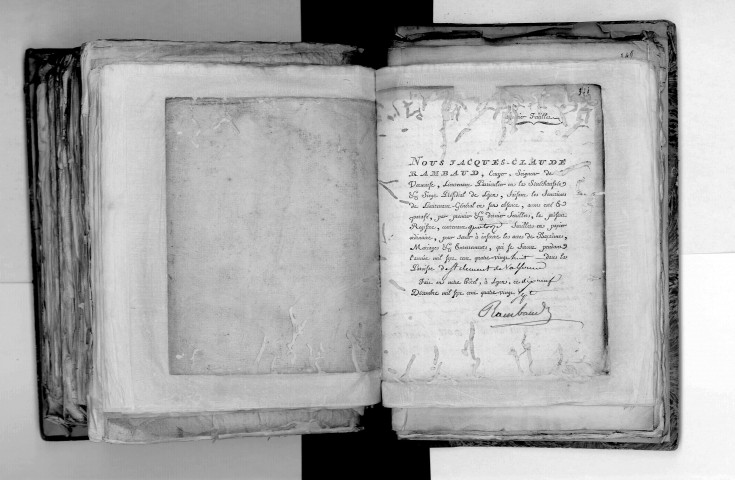 248
311
premier Feuillet
NOUS JACQUES-CLAUDE
RAMBAUD, Ecuyer, Seigneur de
Vernoise, Lieutenant Particulier en la Sénéchaussée
& Siege Présidial de Lyon, faisant les fonctions
de Lieutenant-Général en son absence, avons coté &
paraphé, par premier & dernier Feuillets, le présent
Registre, contenant quatorze Feuillets en papier
ordinaire, pour servir à inscrire les actes de Baptêmes,
Mariages & Enterremens, qui se feront pendant
l'année mil sept cent quatre-vingt huit dans la
Paroisse de St clement de Valsonne
Fait en notre Hôtel, à Lyon, ce dix neuf
Décembre mil sept cent quatre-vingt sept
Rambaud